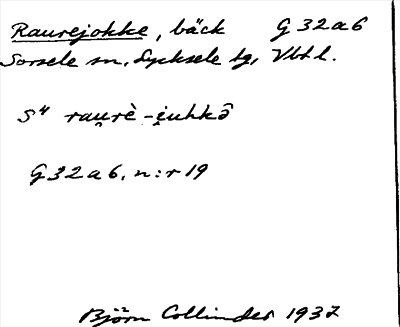 Raurejokke, bäck G 32 a 6
Sorsele sn, Lycksele tg, Vbtl.
S⁴ rau̯rè-i̯uhkô
G 32 a 6, n:r 19
Björn Collinder 1937